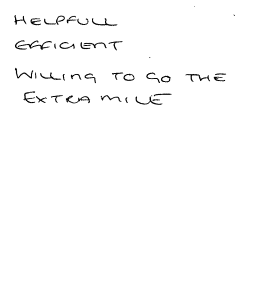 HELPFULL
EFFICIENT
WILLING TO GO THE
EXTRA MILE